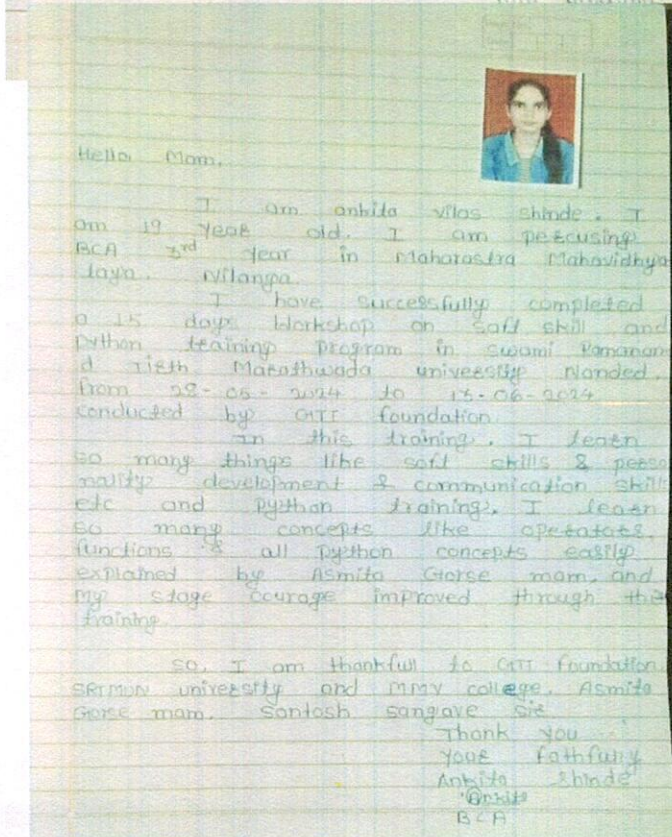 Hello Mam,
I am ankita vilas shinde. I
am 19 year old. I am pescusing
BCA 3rd year in Maharastra Mahavidhya
laya. Nilanga.
I have successfully completed
a 15 days Workshop on Soft skill and
python training program in swami Ramanan
d Tirth Marathwada university Nanded.
from 28-05-2024 to 15-06-2024
conducted by GTT foundation.
In this training. I learn
so many things like soft skills & perso
nality development & communication skill
etc and python training. I learn
so many concepts like
functions & all python concepts easily
explained by Asmita Gorse mam. and
my stage courage improved through the
training.
so, I am thankfull to GTT foundation
SRTMUN university and MMV college. Asmita
Gorse mam. Santosh sangave sir
Thank you
your fathfully
Ankita shinde
Ankita
BCA